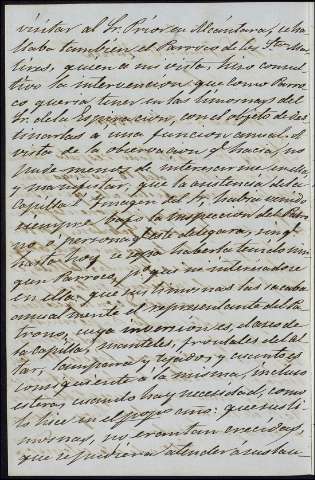 visitar al Sr. Prior en Alcántara, se ha
llaba tambien el Parroco de los Stos Ma
tires, quien á mi vista, hizo consul
tivo la intervencion que como Parro
co queria tener en las limosnas del
Sr. de la Espiracion, con el objeto de des
tinarlas á una funcion anual. A
vista de la observacion q. hacia, no
pude menos de interesarme en ella,
y manifestar, que la asistencia de la
capilla é Imagen del Sr. habia venido
siempre bajo la inspeccion del Patro
no ó persona q. este delegara, sin q.
hasta hoy se sepa haberla tenido nin
gun Parroco, p.r que ni interiores
en ella: que sus limosnas las sacaba
anualmente el representante del Pa
trono, cuya inversion es, el aseo de
la capilla, manteles, frontales del al
tar, lampara, tejados y cuanto es
consiguiente á la misma, incluso
esteras, cuando hay necesidad, como
lo hice en el propio año: que sus li
mosnas, no eran tan crecidas,
que se pudiera atender á sustan